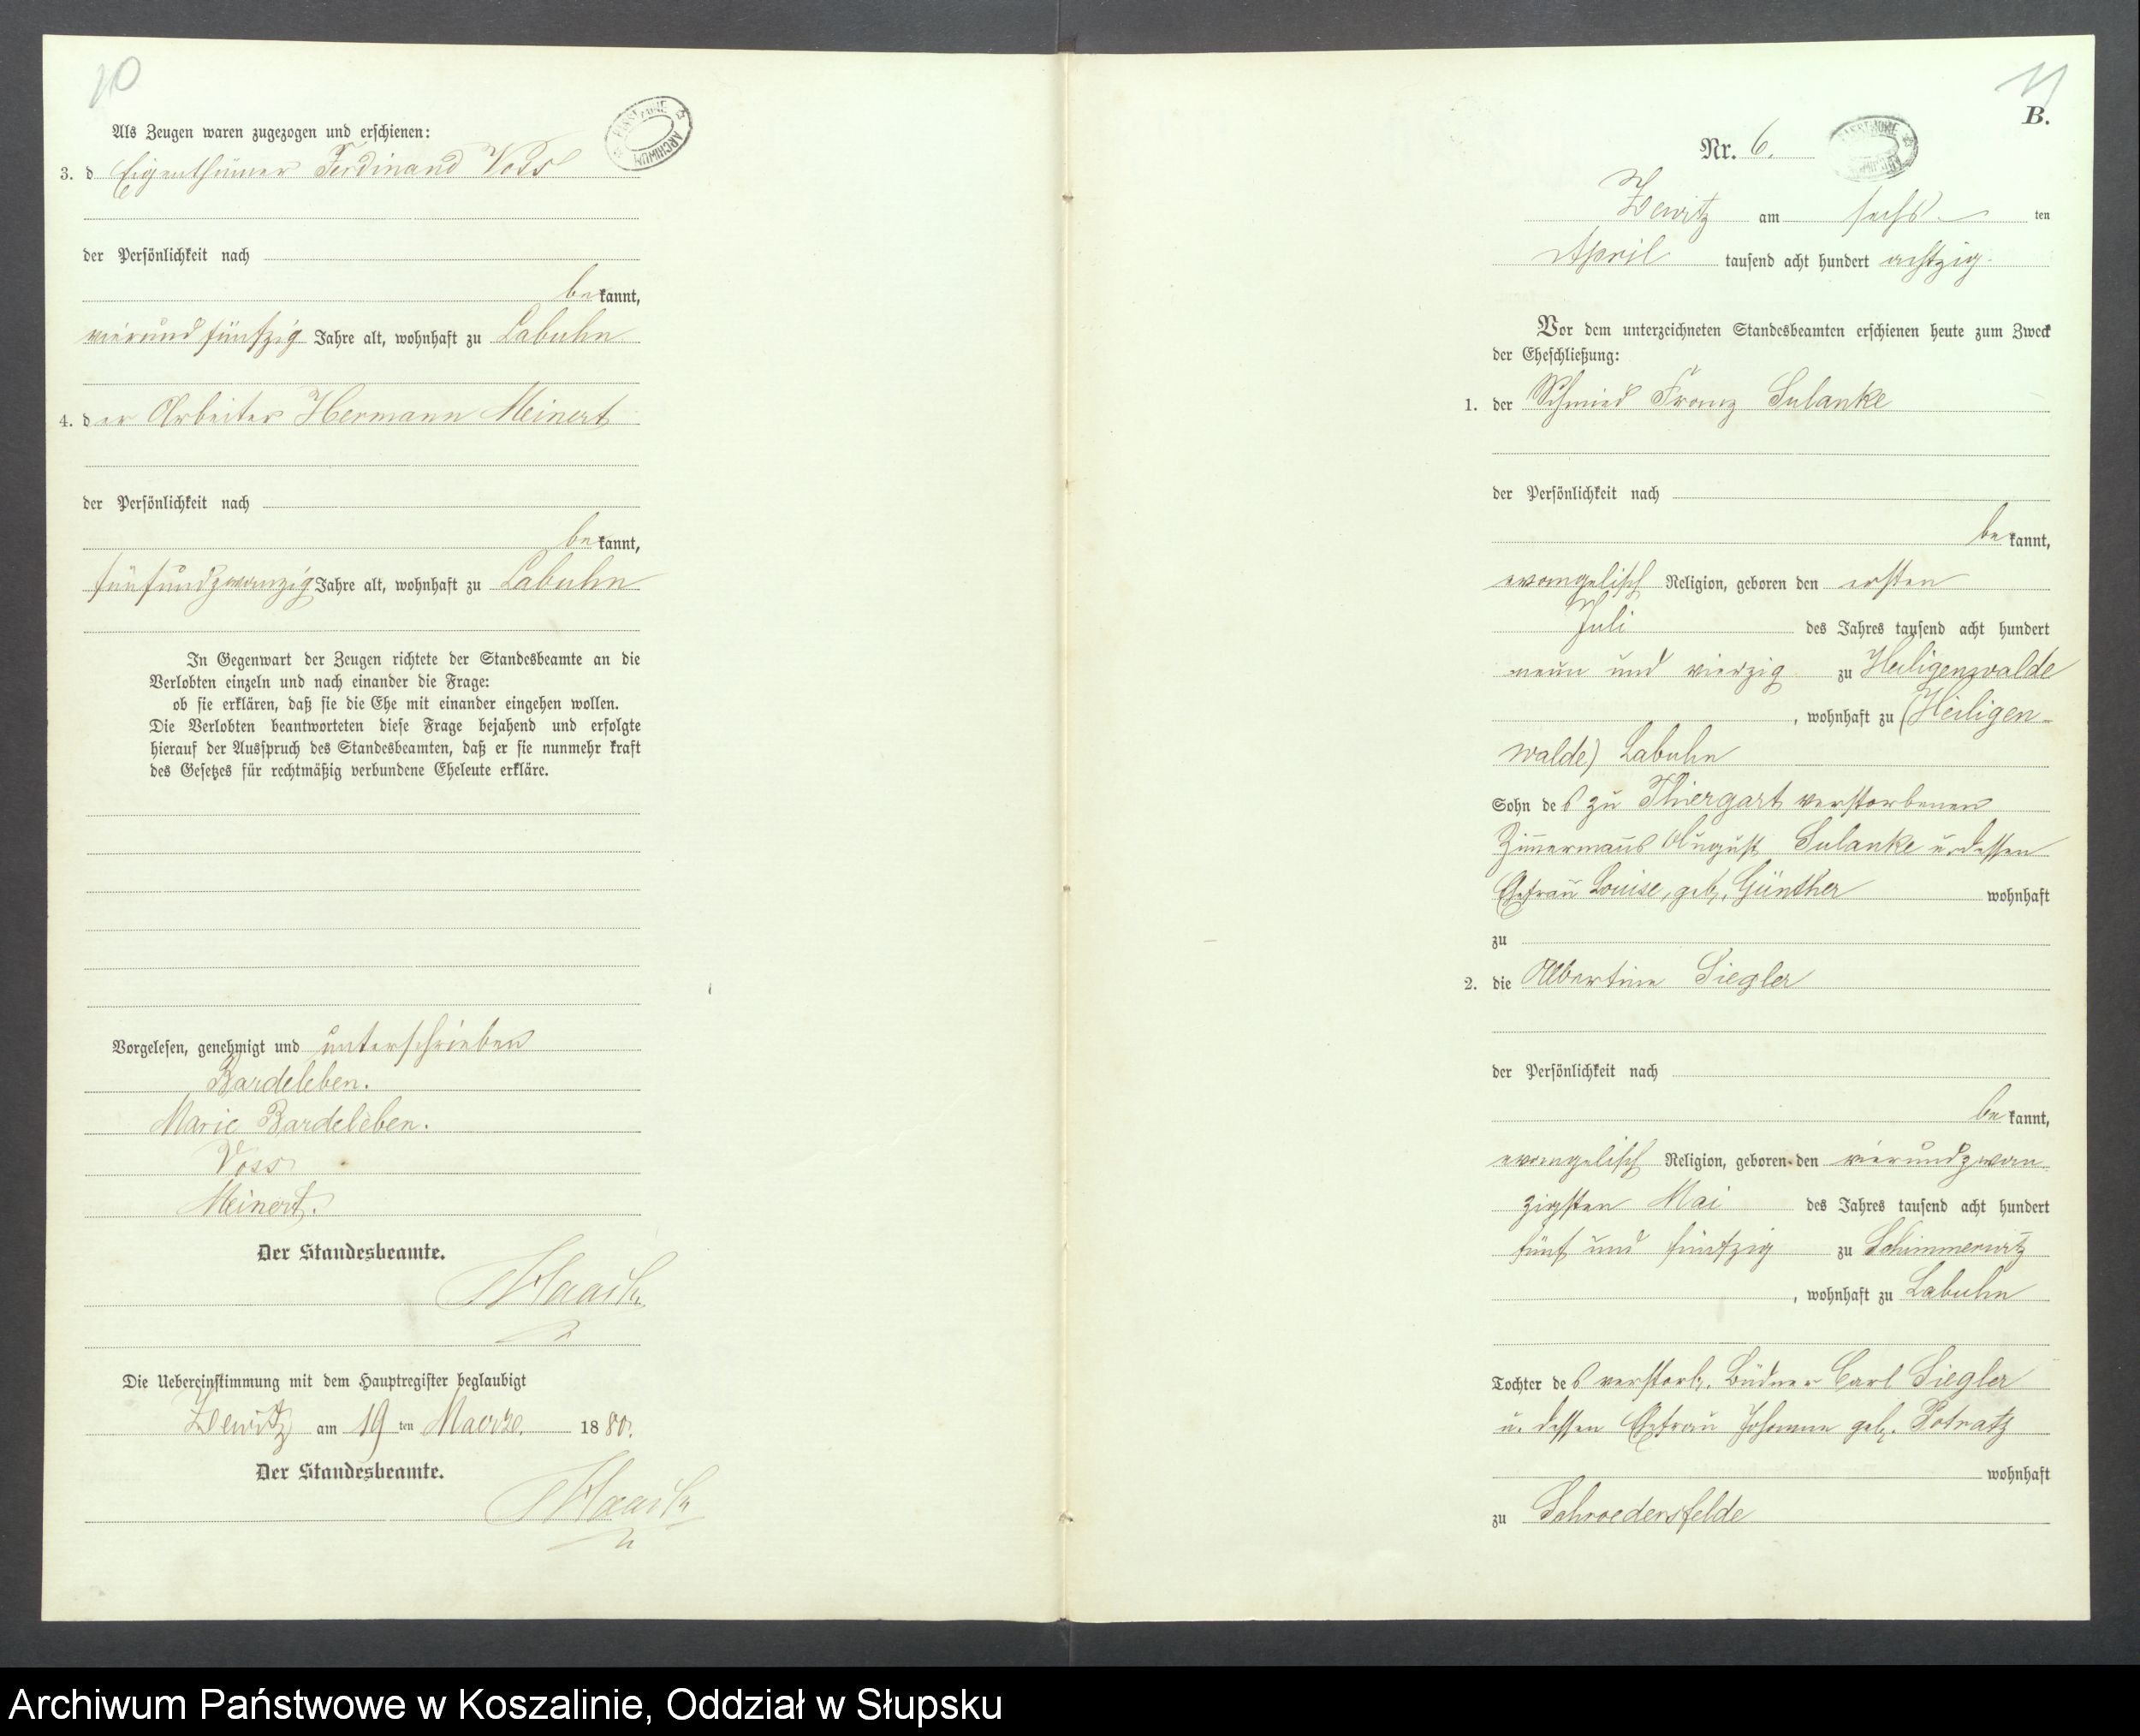 10
Als Zeugen waren zugezogen und erschienen:
3. d Eigenthümer Ferdinand Voss
der Persönlichkeit nach
bekannt,
vierund fünfzig Jahre alt, wohnhaft zu Labuhn
4. der Arbeiter Hermann Meinert
der Persönlichkeit nach
bekannt,
fünfundzwanzig Jahre alt, wohnhaft zu Labuhn
In Gegenwart der Zeugen richtete der Standesbeamte an die
Verlobten einzeln und nach einander die Frage:
ob sie erklären, daß sie die Ehe mit einander eingehen wollen.
Die Verlobten beantworteten diese Frage bejahend und erfolgte
hierauf der Ausspruch des Standesbeamten, daß er sie nunmehr kraft
des Gesetzes für rechtmäßig verbundene Eheleute erkläre.
Vorgelesen, genehmigt und unterschrieben
Bardeleben.
Marie Bardeleben.
Voss
Meinert.
Der Standesbeamte.
Die Uebereinstimmung mit dem Hauptregister beglaubigt
Zewitz am 19 ten Maerze. 1880.
Der Standesbeamte.
11
B.
Nr. 6.
Zewitz am sechs ten
April tausend acht hundert achtzig.
Vor dem unterzeichneten Standesbeamten erschienen heute zum Zweck
der Eheschließung:
1. der Schmied Franz Sulanke
der Persönlichkeit nach
bekannt,
evangelisch Religion, geboren den ersten
Juli des Jahres tausend acht hundert
neun und vierzig zu Heiligenwalde
, wohnhaft zu (Heiligen-
walde) Labuhn
Sohn des zu Thiergart verstorbenen
Zimmermanns August Sulanke u. dessen
Ehefrau Louise, geb. Günther wohnhaft
zu
2. die Albertine Siegler
der Persönlichkeit nach
bekannt,
evangelisch Religion, geboren den vierundzwan
zigsten Mai des Jahres tausend acht hundert
fünf und fünfzig zu Schimmerwitz
, wohnhaft zu Labuhn
Tochter des verstorb. Büdner Carl Siegler
u. dessen Ehefrau Johanne geb. Potratz
wohnhaft
zu Schroedersfelde
Archiwum Państwowe w Koszalinie, Oddział w Słupsku